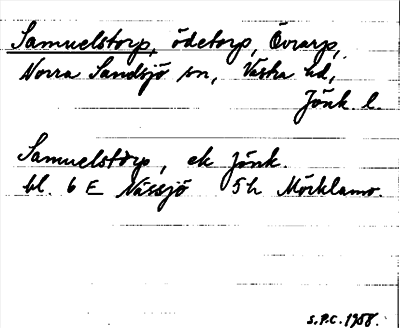 Samuelstorp, ödetorp, Övrarp,
Norra Sandsjö sn, Västra hd,
Jönk. l.
Samuelstorp, ek Jönk.
bl. 6 E Nässjö 5h Mörklamo.
S.P.C. 1958.